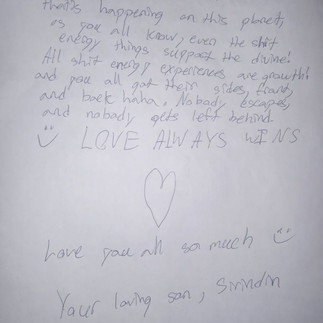 that's happening on this planet,
as you all know, even the shit
energy things support the divine!
All shit energy experiences are growth!
and you all got their sides, front,
and back haha, Nobody escapes
and nobody gets left behind.
:) LOVE ALWAYS WINS
Love you all so much :)
Your loving son, Sirindin